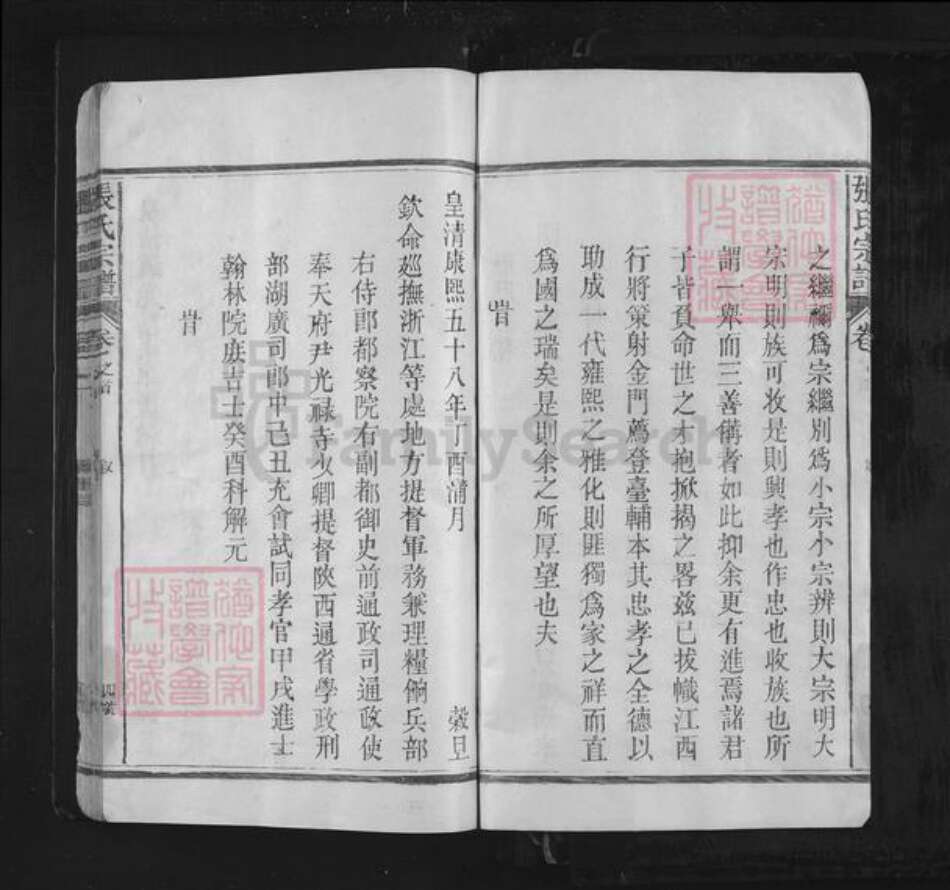 張氏宗譜
卷
之繼禰爲宗繼別爲小宗小宗辨則大宗明大
宗明則族可收是則興孝也作忠也收族也所
謂一舉而三善備者如此抑余更有進焉諸君
子皆負命世之才抱掀揭之畧茲已拔幟江西
行將策射金門薦登臺輔本其忠孝之全德以
助成一代雍熙之雅化則匪獨爲家之祥而直
爲國之瑞矣是則余之所厚望也夫
旹
皇清康熙五十八年丁酉蒲月 榖旦
欽命廵撫浙江等處地方提督軍務兼理糧餉兵部
右侍郎都察院右副都御史前通政司通政使
奉天府尹光祿寺少卿提督陝西通省學政刑
部湖廣司郎中己丑充會試同考官甲戌進士
翰林院庶吉士癸酉科解元
旹
張氏宗譜
卷之首
FamilySearch
譜學會
收藏
譜學會
收藏